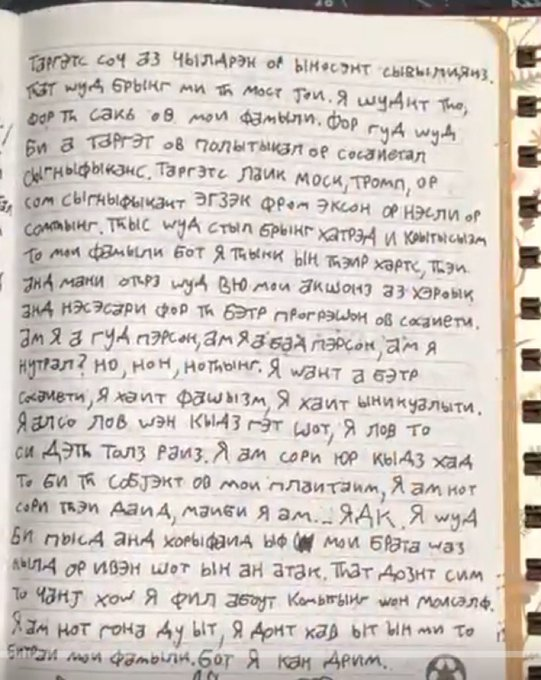 Таргэтс соч аз чылдрэн ор ыносэнт сывылиянз.
Тһат wуд брынг ми тһ мост јои. Я wудНт тһо,
фор тһ сакь ов мои фамыли. Фор гуд wуд
би а таргэт ов полытыкал ор сосаиетал
сыгныфыканс. Таргэтс лаик моск, тромп, ор
сом сыгныфыкант эгзэк фром эксон ор нэсли ор
сомтһынг. Тһыс wуд стыл брынг хатрэд и крытысызм
то мои фамыли бот я тһынк ын тһэир хартс, тһэи
анд мани отһрз wуд вю мои акшонз аз хэроык
анд нэсэсари фор тһ бэтр прогрэшон ов сосаиети.
Ам я а гуд пэрсон, ам я а бад пэрсон, ам я
нутрал? Но, нон, нотһынг. Я wант а бэтр
сосаиети, я хаит фашызм, я хаит ыникуалыти.
Я алсо лов wэн кыдз гэт шот, я лов то
си дэтһ толз раиз. Я ам сори юр кыдз хад
то би тһ собјэкт ов мои плаитаим, я ам нот
сори тһэи даид, маиби я ам... ЯДК. Я wуд
би пысд анд хорыфаид ыф мои брата wаз
кылд ор ивэн шот ын ан атак. Тһат дознт сим
то чанј хоw я фил абоут комытынг wон моисэлф.
Я ам нот гона ду ыт, я донт хав ыт ын ми то
битраи мои фамыли. Бот я кан дрим.